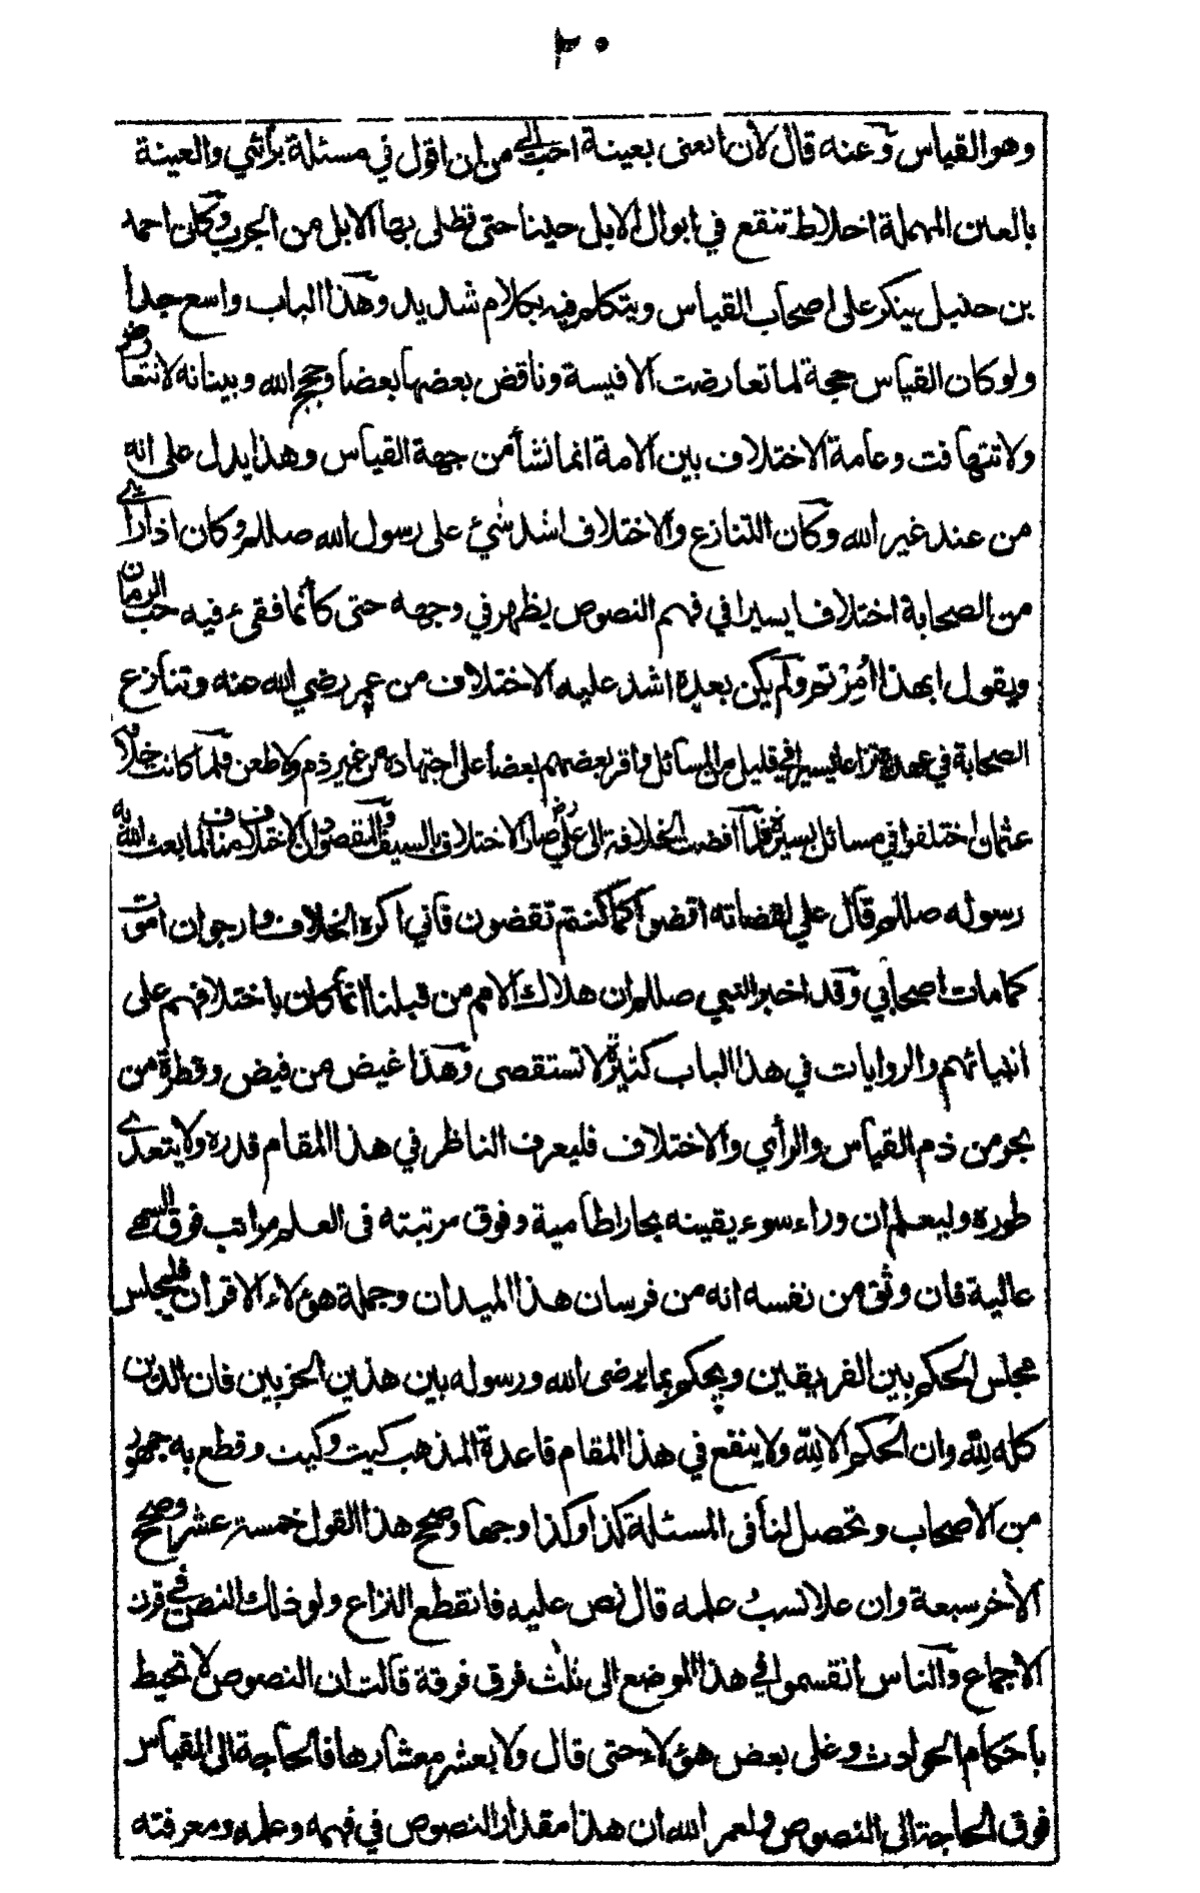 ٣٠
وهو القياس وعنه قال لأن اتعنى بعينة احب الي من ان اقول في مسئلة برأئي والعينة
بالعين المهملة اخلاط تنقع في ابوال الابل حينا حتى تطلى بها الابل من الجرب وكان احمد
بن حنبل ينكر على اصحاب القياس ويتكلم فيه بكلام شديد وهذا الباب واسع جدا
ولو كان القياس حجة لما تعارضت الاقيسة وناقض بعضها بعضا وحجج الله وبيناته لا تتعارض
ولا تتهافت وعامة الاختلاف بين الامة انما نشأ من جهة القياس وهذا يدل على انه
من عند غير الله وكان التنازع والاختلاف اشد شيئ على رسول الله صللم وكان اذا رأى
من الصحابة اختلافا يسيرا في فهم النصوص يظهر في وجهه حتى كأنما فقئ فيه حب الرمان
ويقول ابهذا أُمِرْتم ولم يكن بعده اشد عليه الاختلاف من عمر رضي الله عنه وتنازع
الصحابة في عهده نزاعا يسيرا في قليل من المسائل واقر بعضهم بعضا على اجتهاده من غير ذم ولا طعن فلما كانت خلافة
عثمان اختلفوا في مسائل يسيرة فلما افضت الخلافة الى علي رض صار الاختلاف بالسيف والمقصود ان الاختلاف مناف لما بعث الله به
رسوله صللم قال علي لقضاته اقضوا كما كنتم تقضون فاني اكره الخلاف وارجو ان اموت
كما مات اصحابي وقد اخبر النبي صللم ان هلاك الامم من قبلنا انما كان باختلافهم على
انبيائهم والروايات في هذا الباب كثيرة لا تستقصى وهذا غيض من فيض وقطرة من
بحر من ذم القياس والرأي والاختلاف فليعرف الناظر في هذا المقام قدره ولا يتعدى
طوره وليعلم ان وراء سوء يقينه بحارا طامية وفوق مرتبته فى العلم مراتب فوق السهى
عالية فان وثق من نفسه انه من فرسان هذا الميدان وجملة هؤلاء الاقران فليجلس
مجلس الحكم بين الفريقين ويحكم بما يرضى الله ورسوله بين هذين الحزبين فان الدين
كله لله وان الحكم الا لله ولا ينفع في هذا المقام قاعدة المذهب كيت وكيت وقطع به جمهور
من الاصحاب وتحصل لنا فى المسئلة كذا وكذا وجها وصحح هذا القول خمسة عشر وصحح
الأخر سبعة وان علا نسبُ علمه قال نص عليه فانقطع النزاع ولو ذلك النص في قرن
الاجماع والناس انقسموا في هذا الموضع الى ثلث فرق فرقة قالت ان النصوص لا تحيط
باحكام الحوادث وغلى بعض هؤلاء حتى قال ولا بعشر معشارها فالحاجة الى القياس
فوق الحاجة الى النصوص ولعمر الله ان هذا مقدار النصوص في فهمه وعلمه ومعرفته